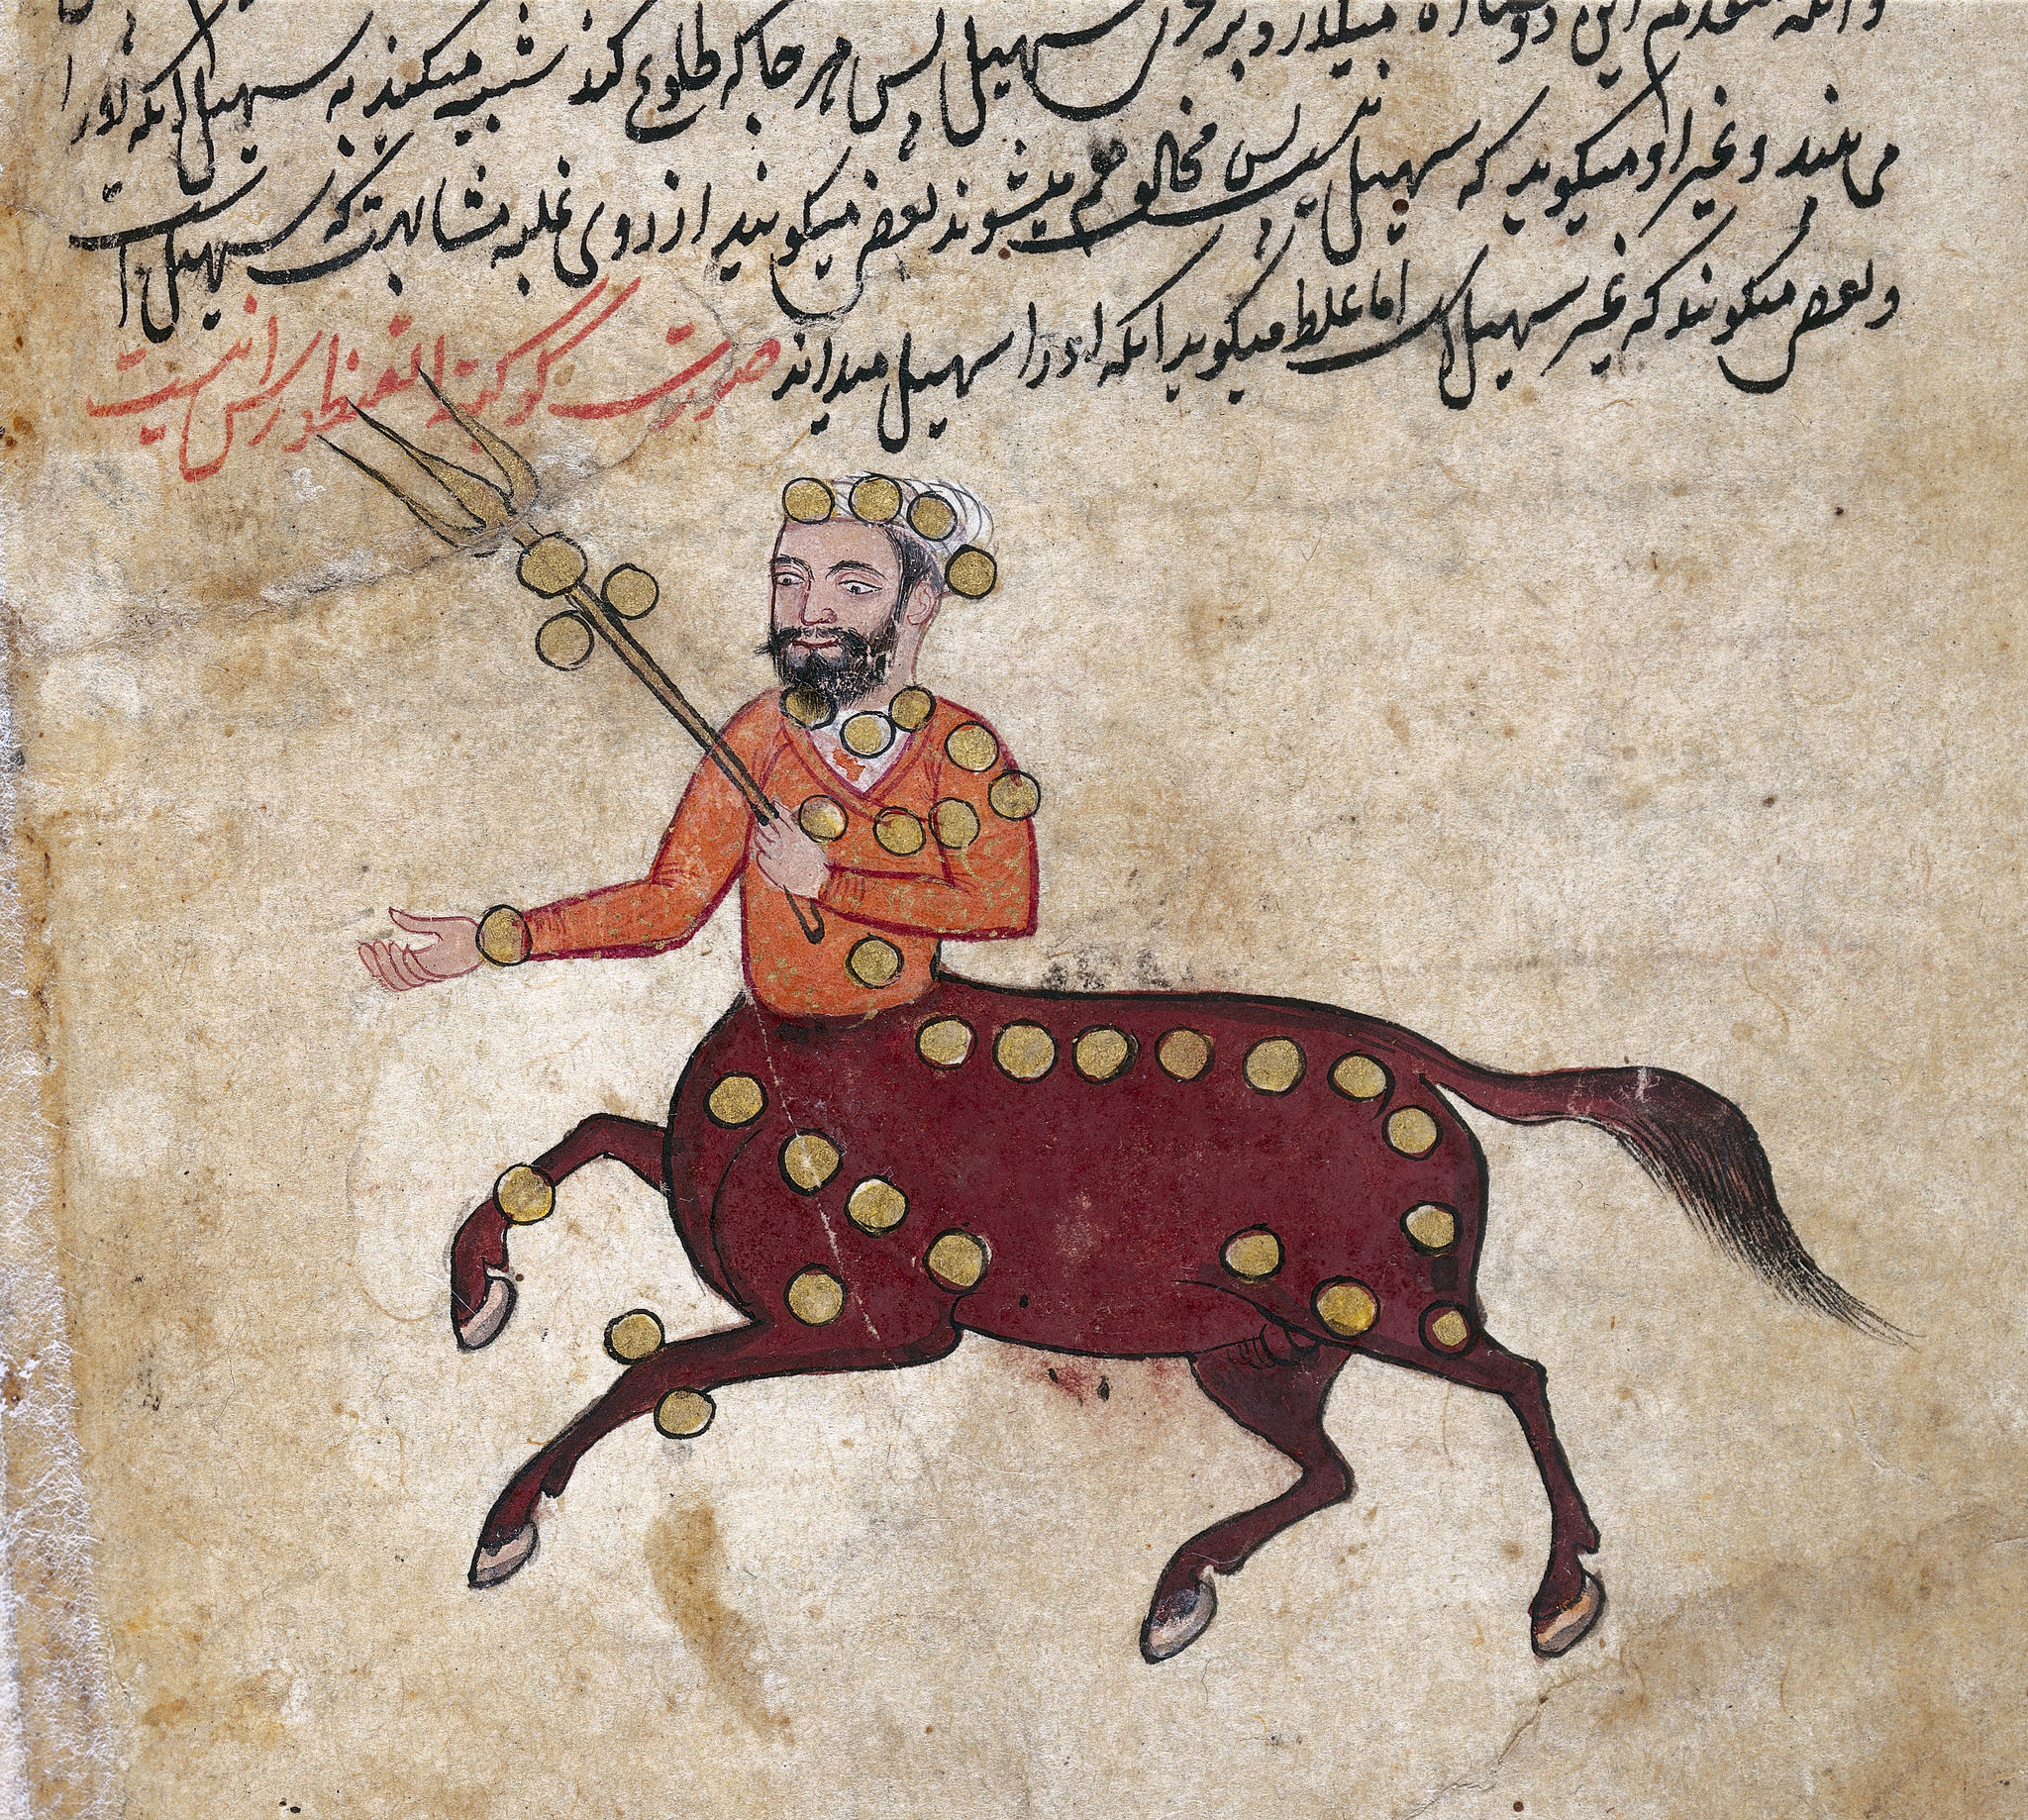 وانکه مقدم این دو ستاره میلدارد بر حول سهیل پس هر جا که طلوع کند شبیه میکند به سهیل انکه اورا
می بیند و غیر او میکوید که سهیل نیست پس مخالف هم میشوند بعض میکویند از روی غلبه مشابهت که سهیل است
و بعض میکویند که غیر سهیل است اما غلط میکوید انکه اورا سهیل میداند صورت کوکبة القنطورس انیست